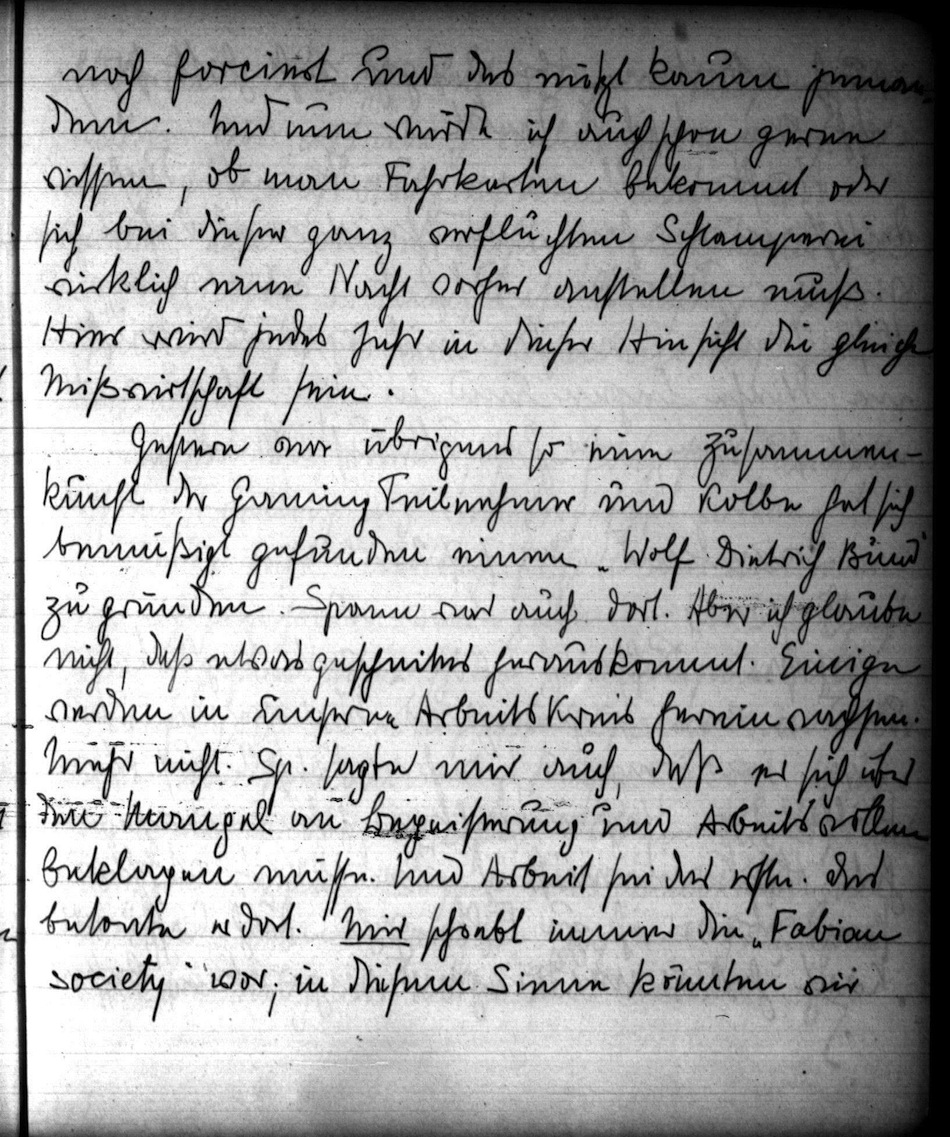 noch forciert und das nützt kaum jeman-
dem. Und nun würde ich auch schon gerne
wissen, ob man Fahrkarten bekommt oder
sich bei dieser ganz verfluchten Schlamperei
wirklich eine Nacht vorher anstellen muß.
Hier wird jedes Jahr in dieser Hinsicht die gleiche
Mißwirtschaft sein.
Gestern war übrigens so eine Zusammen-
kunft der Gaming Teilnehmer und Kolbe hat sich
bemüßigt gefunden einen „Wolf Dietrich Bund"
zu gründen. Spann war auch dort. Aber ich glaube
nicht, daß etwas gescheites herauskommt. Einige
werden in unseren Arbeitskreis hereinwachsen.
Mehr nicht. Sp. sagte mir auch, daß er sich über
den Mangel an Begeisterung und Arbeitswillen
beklagen müsse. Und Arbeit sei das erste. Das
betonte er dort. Mir schwebt immer die „Fabian
society" vor; in diesem Sinne könnten wir